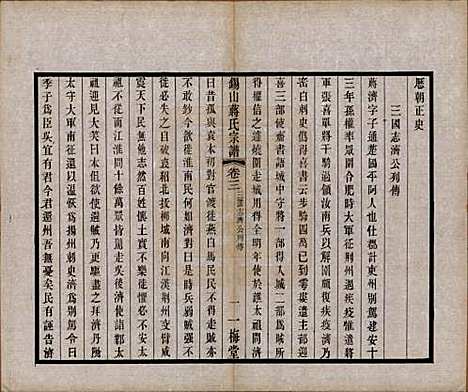 歷朝正史
三國志濟公列傳
蔣濟字子通楚國平阿人也仕郡計吏州別駕建安十
三年孫權率眾圍合肥時大軍征荊州遇疾疫惟遣將
軍張喜單將千騎過領汝南兵以解圍頗復疾疫濟乃
密白刺史偽得喜書云步騎四萬已到雩婁遣主簿迎
喜三部使齎書語城中守將一部得入城二部為賊所
得權信之遽燒圍走城用得全明年使於譙太祖問濟
錫山蔣氏宗譜 卷三 三國志濟公列傳 一 一梅堂
曰昔孤與袁本初對官渡徙燕白馬民民不得走賊亦
不敢鈔今欲徙淮南民何如濟對曰是時兵弱賊強不
徙必失之自破袁紹北拔柳城南向江漢荊州交臂威
震天下民無他志然百姓懷土實不樂徙懼必不安太
祖不從而江淮間十餘萬眾皆驚走吳後濟使詣鄴太
祖迎見大笑曰本但欲使避賊乃更驅盡之拜濟丹陽
太守大軍南征還以溫恢為揚州刺史濟為別駕令曰
季子為臣吳宜有君今君還州吾無憂矣民有誣告濟